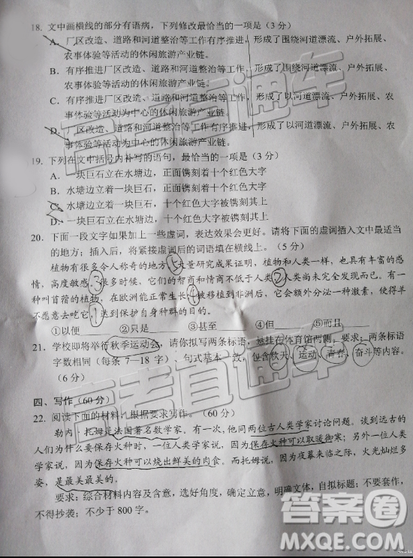 18. 文中画横线的部分有语病，下列修改最恰当的一项是（3分）
A. 厂区改造、道路和河道整治等工作有序推进，形成了围绕河流漂流、户外拓展、
农事体验等活动的休闲旅游产业链。
B. 有序推进厂区改造、道路和河道整治等工作，形成了围绕河流漂流、户外拓展、
农事体验等活动的休闲旅游产业链。
C. 有序推进厂区改造、道路和河道整治等工作，形成了以河道漂流、户外拓展、
农事体验等活动为中心的休闲旅游产业链。
D. 厂区改造、道路和河道整治等工作有序推进，形成了以河道漂流、户外拓展、
农事体验等活动为中心的休闲旅游产业链。
19. 下列在文中括号内补写的语句，最恰当的一项是（3分）
A. 一块巨石立在水塘边，正面镌刻着十个红色大字
B. 水塘边立着一块巨石，正面镌刻着十个红色大字
C. 水塘边立着一块巨石，十个红色大字被镌刻其上
D. 一块巨石立在水塘边，十个红色大字被镌刻其上
20. 下面一段文字如果加上一些虚词，表达效果会更好。请将下面的虚词插入文中最适当
的地方；插入后，将紧接虚词后的词语填在横线上。（5分）
植物有很多令人称奇的地方
大量研究成果证明，植物和人类一样，也具有丰富的感
情，高度敏感
很多时候，它们的
和痛苦不低于人类
人类尚未完全发现而已。有一
种叫首蓿的植物，在欧洲能正常生长
被移植到非洲
它会额外分泌一种激素，使得羊
不愿意去吃它
达到保护自身种群的目的。
①以便 ②只是 ③甚至 ④但 ⑤而且
21. 学校即将举行秋季运动会，请你拟写两条标语，
两条标语
字数相同（每条7—18字），句式基本一致，包含秋天、运动、青春、奋斗等内容。
（6分）
四、写作（60分）
22. 阅读下面的材料，根据要求写作。（60分）
勒内·托姆是法国著名数学家，有一次，他同两位古人类学家讨论问题。谈到远古的
人们为什么要保存火种时，一位人类学家说，因为保存火种可以取暖御寒；另外一位人类
学家说，因为保存火种可以烧出鲜美的肉食。而托姆说，因为夜幕来临之际，火光灿烂多
姿，是最美最美的。
要求：综合材料内容及含意，选好角度，确定立意，明确文体，自拟标题；不要套作，
不得抄袭；不少于800字。
高考直通车
高考直通车
答案圈
MXQE.COM